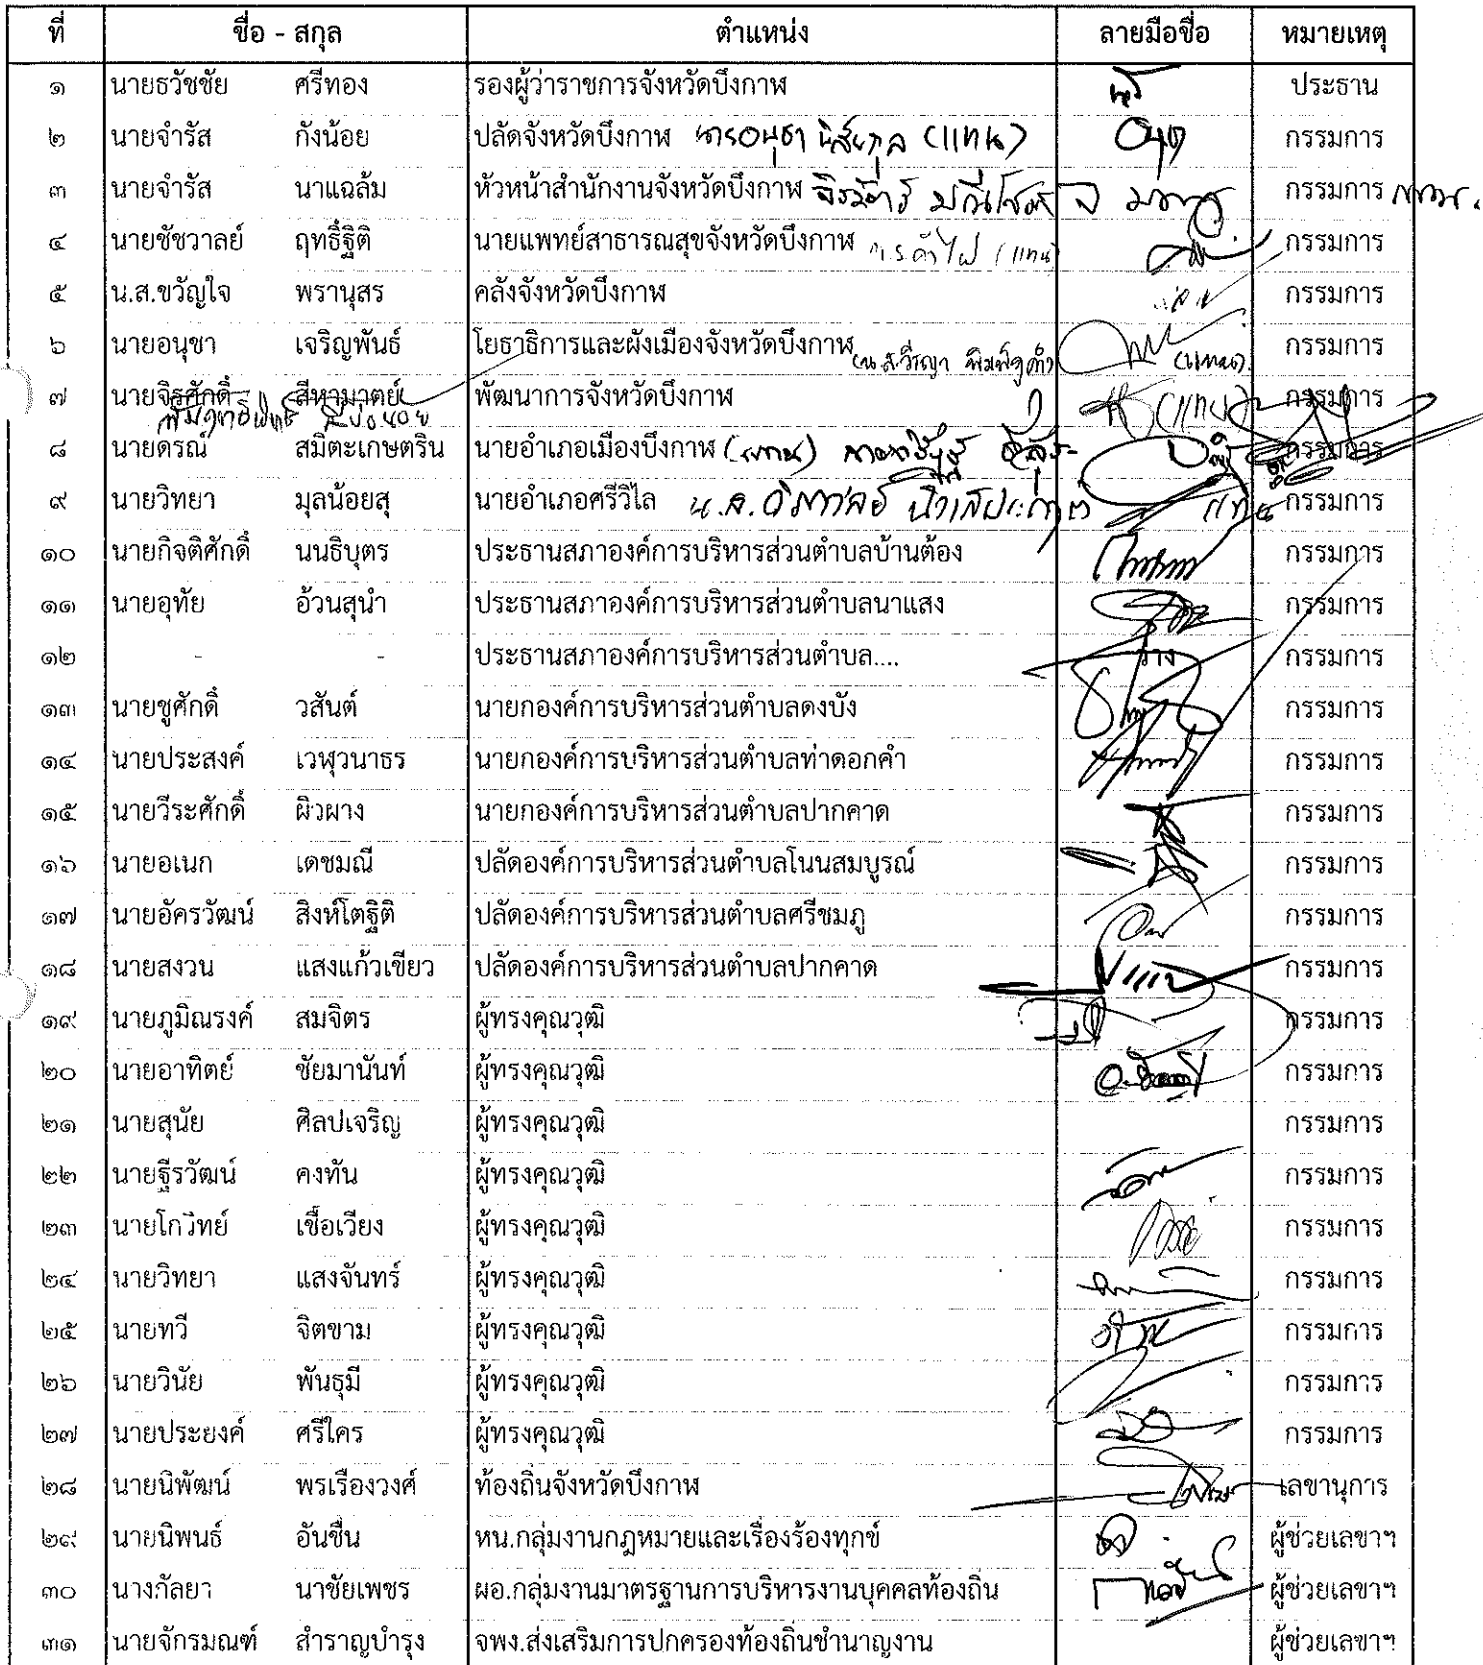 ที่ ชื่อ - สกุล ตำแหน่ง ลายมือชื่อ หมายเหตุ
๑ นายธวัชชัย ศรีทอง รองผู้ว่าราชการจังหวัดบึงกาฬ ประธาน
๒ นายจำรัส กังน้อย ปลัดจังหวัดบึงกาฬ (แทน) กรรมการ
๓ นายจำรัส นาแฉล้ม หัวหน้าสำนักงานจังหวัดบึงกาฬ กรรมการ
๔ นายชัชวาลย์ ฤทธิ์ฐิติ นายแพทย์สาธารณสุขจังหวัดบึงกาฬ (แทน) กรรมการ
๕ น.ส.ขวัญใจ พรานุสร คลังจังหวัดบึงกาฬ กรรมการ
๖ นายอนุชา เจริญพันธ์ โยธาธิการและผังเมืองจังหวัดบึงกาฬ (แทน) กรรมการ
๗ นายจิรศักดิ์ สีหามาตย์ พัฒนาการจังหวัดบึงกาฬ (แทน) กรรมการ
๘ นายดรณ์ สมิตะเกษตริน นายอำเภอเมืองบึงกาฬ (แทน) กรรมการ
๙ นายวิทยา มุลน้อยสุ นายอำเภอศรีวิไล น.ส. แทน กรรมการ
๑๐ นายกิจติศักดิ์ นนธิบุตร ประธานสภาองค์การบริหารส่วนตำบลบ้านต้อง กรรมการ
๑๑ นายอุทัย อ้วนสุนำ ประธานสภาองค์การบริหารส่วนตำบลนาแสง กรรมการ
๑๒ - - ประธานสภาองค์การบริหารส่วนตำบล.... ว่าง กรรมการ
๑๓ นายชูศักดิ์ วสันต์ นายกองค์การบริหารส่วนตำบลดงบัง กรรมการ
๑๔ นายประสงค์ เวฬุวนาธร นายกองค์การบริหารส่วนตำบลท่าดอกคำ กรรมการ
๑๕ นายวีระศักดิ์ ผิวผาง นายกองค์การบริหารส่วนตำบลปากคาด กรรมการ
๑๖ นายอเนก เดชมณี ปลัดองค์การบริหารส่วนตำบลโนนสมบูรณ์ กรรมการ
๑๗ นายอัครวัฒน์ สิงห์โตฐิติ ปลัดองค์การบริหารส่วนตำบลศรีชมภู กรรมการ
๑๘ นายสงวน แสงแก้วเขียว ปลัดองค์การบริหารส่วนตำบลปากคาด กรรมการ
๑๙ นายภูมิณรงค์ สมจิตร ผู้ทรงคุณวุฒิ กรรมการ
๒๐ นายอาทิตย์ ชัยมานันท์ ผู้ทรงคุณวุฒิ กรรมการ
๒๑ นายสุนัย ศิลปเจริญ ผู้ทรงคุณวุฒิ กรรมการ
๒๒ นายฐีรวัฒน์ คงทัน ผู้ทรงคุณวุฒิ กรรมการ
๒๓ นายโกวิทย์ เชื้อเวียง ผู้ทรงคุณวุฒิ กรรมการ
๒๔ นายวิทยา แสงจันทร์ ผู้ทรงคุณวุฒิ กรรมการ
๒๕ นายทวี จิตขาม ผู้ทรงคุณวุฒิ กรรมการ
๒๖ นายวินัย พันธุมี ผู้ทรงคุณวุฒิ กรรมการ
๒๗ นายประยงค์ ศรีใคร ผู้ทรงคุณวุฒิ กรรมการ
๒๘ นายนิพัฒน์ พรเรืองวงศ์ ท้องถิ่นจังหวัดบึงกาฬ เลขานุการ
๒๙ นายนิพนธ์ อันชื่น หน.กลุ่มงานกฎหมายและเรื่องร้องทุกข์ ผู้ช่วยเลขาฯ
๓๐ นางกัลยา นาชัยเพชร ผอ.กลุ่มงานมาตรฐานการบริหารงานบุคคลท้องถิ่น ผู้ช่วยเลขาฯ
๓๑ นายจักรมณฑ์ สำราญบำรุง จพง.ส่งเสริมการปกครองท้องถิ่นชำนาญงาน ผู้ช่วยเลขาฯ